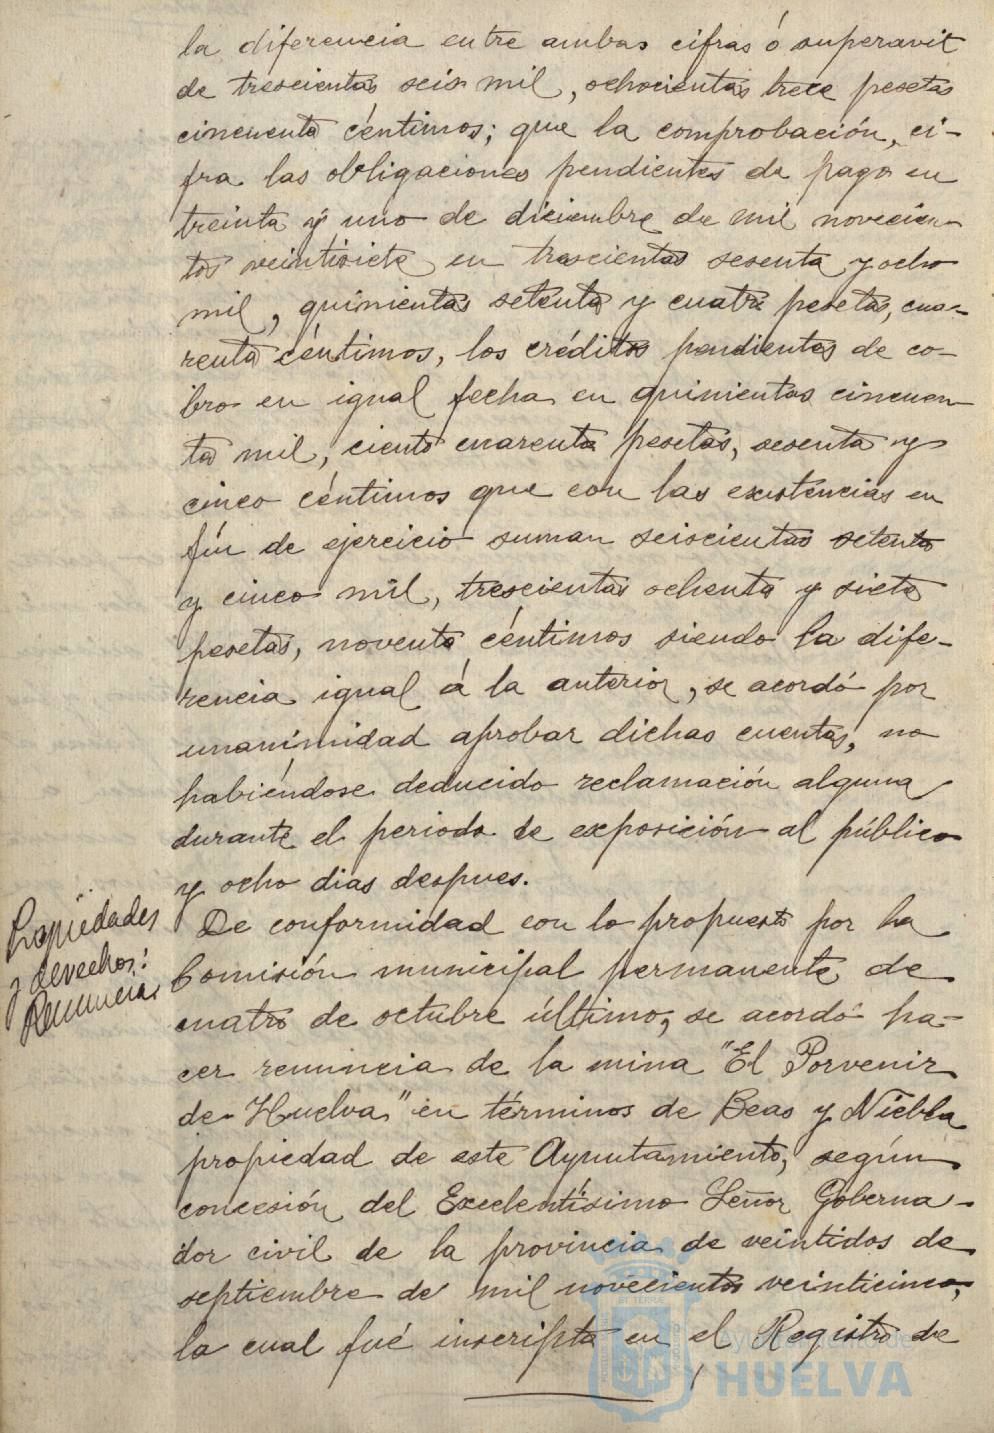 la diferencia entre ambas cifras ó superavit
de trescientas seis mil, ochocientas trece pesetas
cincuenta céntimos; que la comprobación, ci-
fra las obligaciones pendientes de pago en
treinta y uno de diciembre de mil novecien-
tos veintisiete en trescientas sesenta y ocho
mil, quinientas setenta y cuatro pesetas, cua-
renta céntimos, los créditos pendientes de co-
bro en igual fecha en quinientas cincuen-
ta mil, ciento cuarenta pesetas, sesenta y
cinco céntimos que con las existencias en
fín de ejercicio suman seiscientas setenta
y cinco mil, trescientas ochenta y siete
pesetas, noventa céntimos siendo la dife-
rencia igual á la anterior, se acordó por
unanímidad aprobar dichas cuentas, no
habiéndose deducido reclamación alguna
durante el periodo de exposición al público
y ocho dias despues.
Propiedades
y derechos:
Renuncias
De conformidad con lo propuesto por la
Comisión municipal permanente de
cuatro de octubre último, se acordó ha-
cer renuncia de la mina "El Porvenir
de Huelva" en términos de Beas y Niebla
propiedad de este Ayuntamiento, según
concesión del Excelentísimo Señor Goberna-
dor civil de la provincia de veintidos de
septiembre de mil novecientos veinticinco,
la cual fué inscripta en el Registro de
Ayuntamiento de
HUELVA